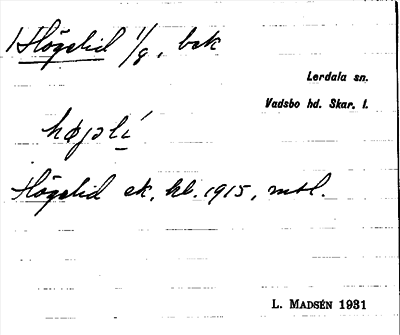 1 Högelid 1/8, bsk
Lerdala sn.
Vadsbo hd. Skar. l.
høgəlí
Högelid ek. kb. 1915, mtl.
L. MADSÉN 1931